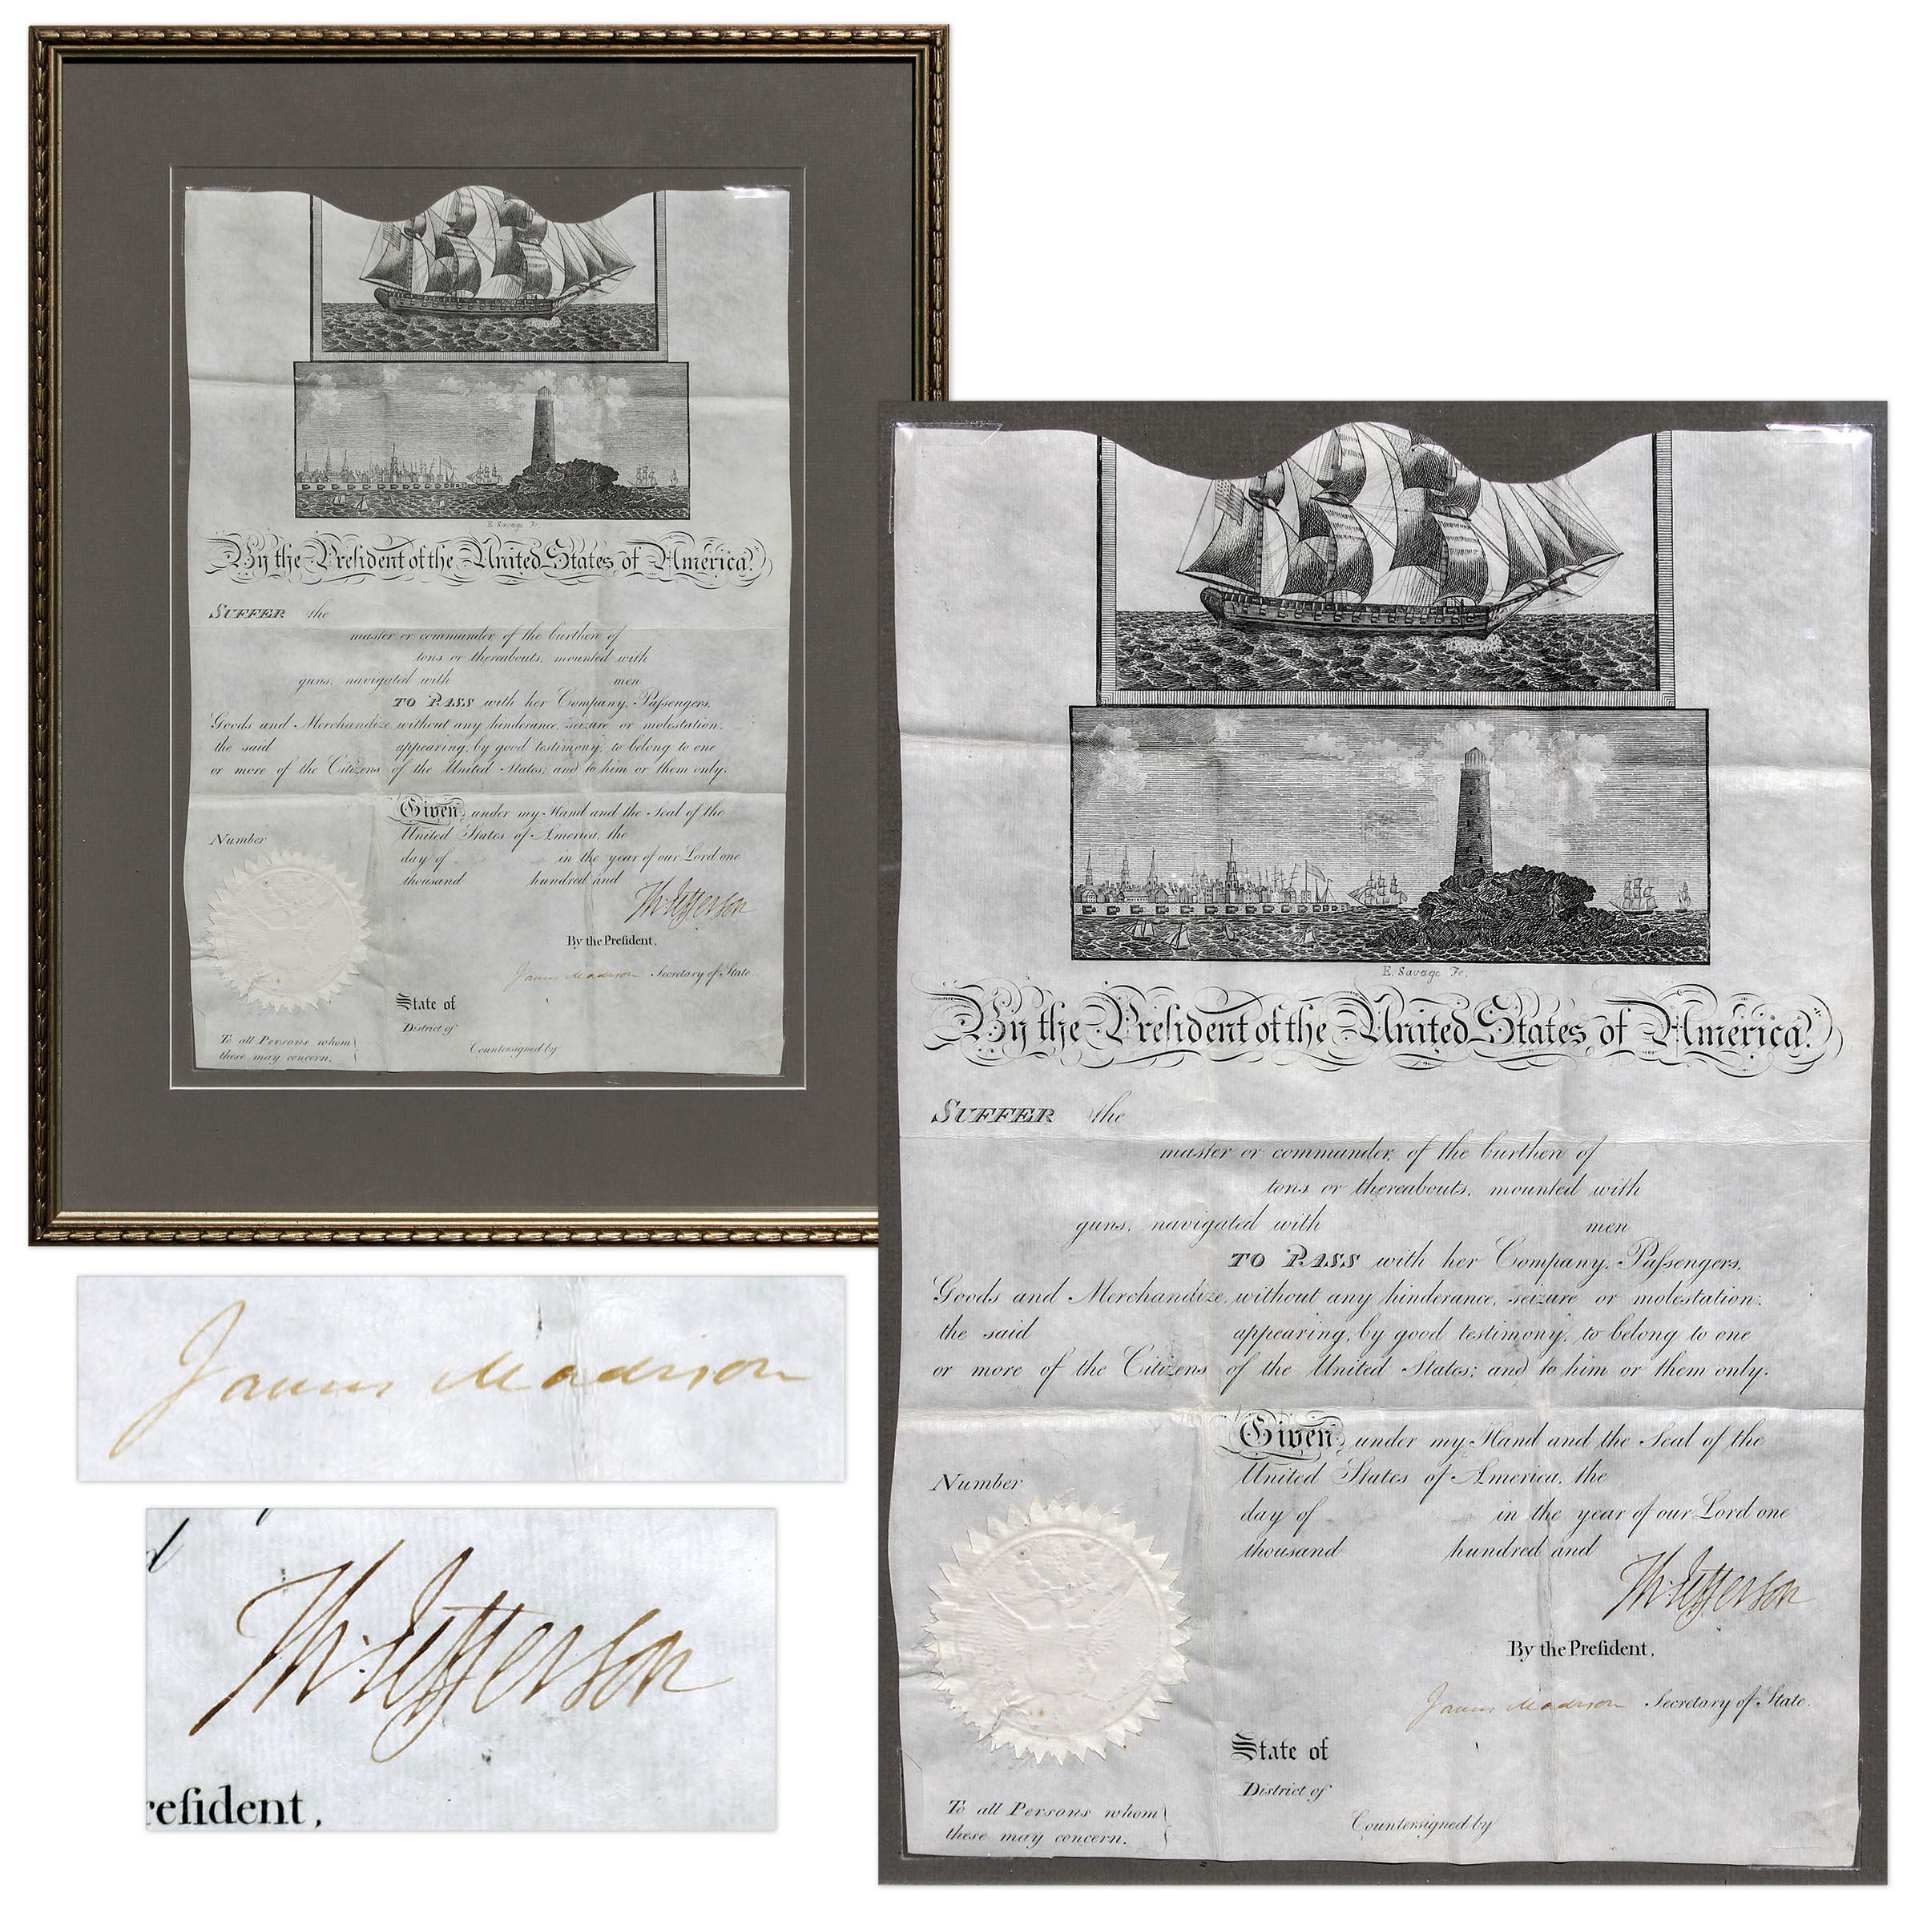 E. Savage Fc.
By the President of the United States of America.
SUFFER the
master or commander, of the burthen of
tons or thereabouts, mounted with
guns, navigated with men
TO PASS with her Company, Paſsengers,
Goods and Merchandize, without any hinderance, seizure or molestation;
the said appearing, by good testimony, to belong to one
or more of the Citizens of the United States; and to him or them only.
Given, under my Hand and the Seal of the
United States of America, the
Number
day of in the year of our Lord one
thousand hundred and
Th: Jefferson
By the Preſident,
James Madison Secretary of State
State of
District of
To all Persons whom
these may concern.
Countersigned by
E. Savage Fc.
By the President of the United States of America.
SUFFER the
master or commander, of the burthen of
tons or thereabouts, mounted with
guns, navigated with men
TO PASS with her Company, Paſsengers,
Goods and Merchandize, without any hinderance, seizure or molestation;
the said appearing, by good testimony, to belong to one
or more of the Citizens of the United States; and to him or them only.
Given, under my Hand and the Seal of the
Number
United States of America, the
day of in the year of our Lord one
thousand hundred and
Th: Jefferson
By the Preſident,
James Madison Secretary of State.
State of
District of
To all Persons whom
these may concern.
Countersigned by
James Madison
Th: Jefferson
reſident,